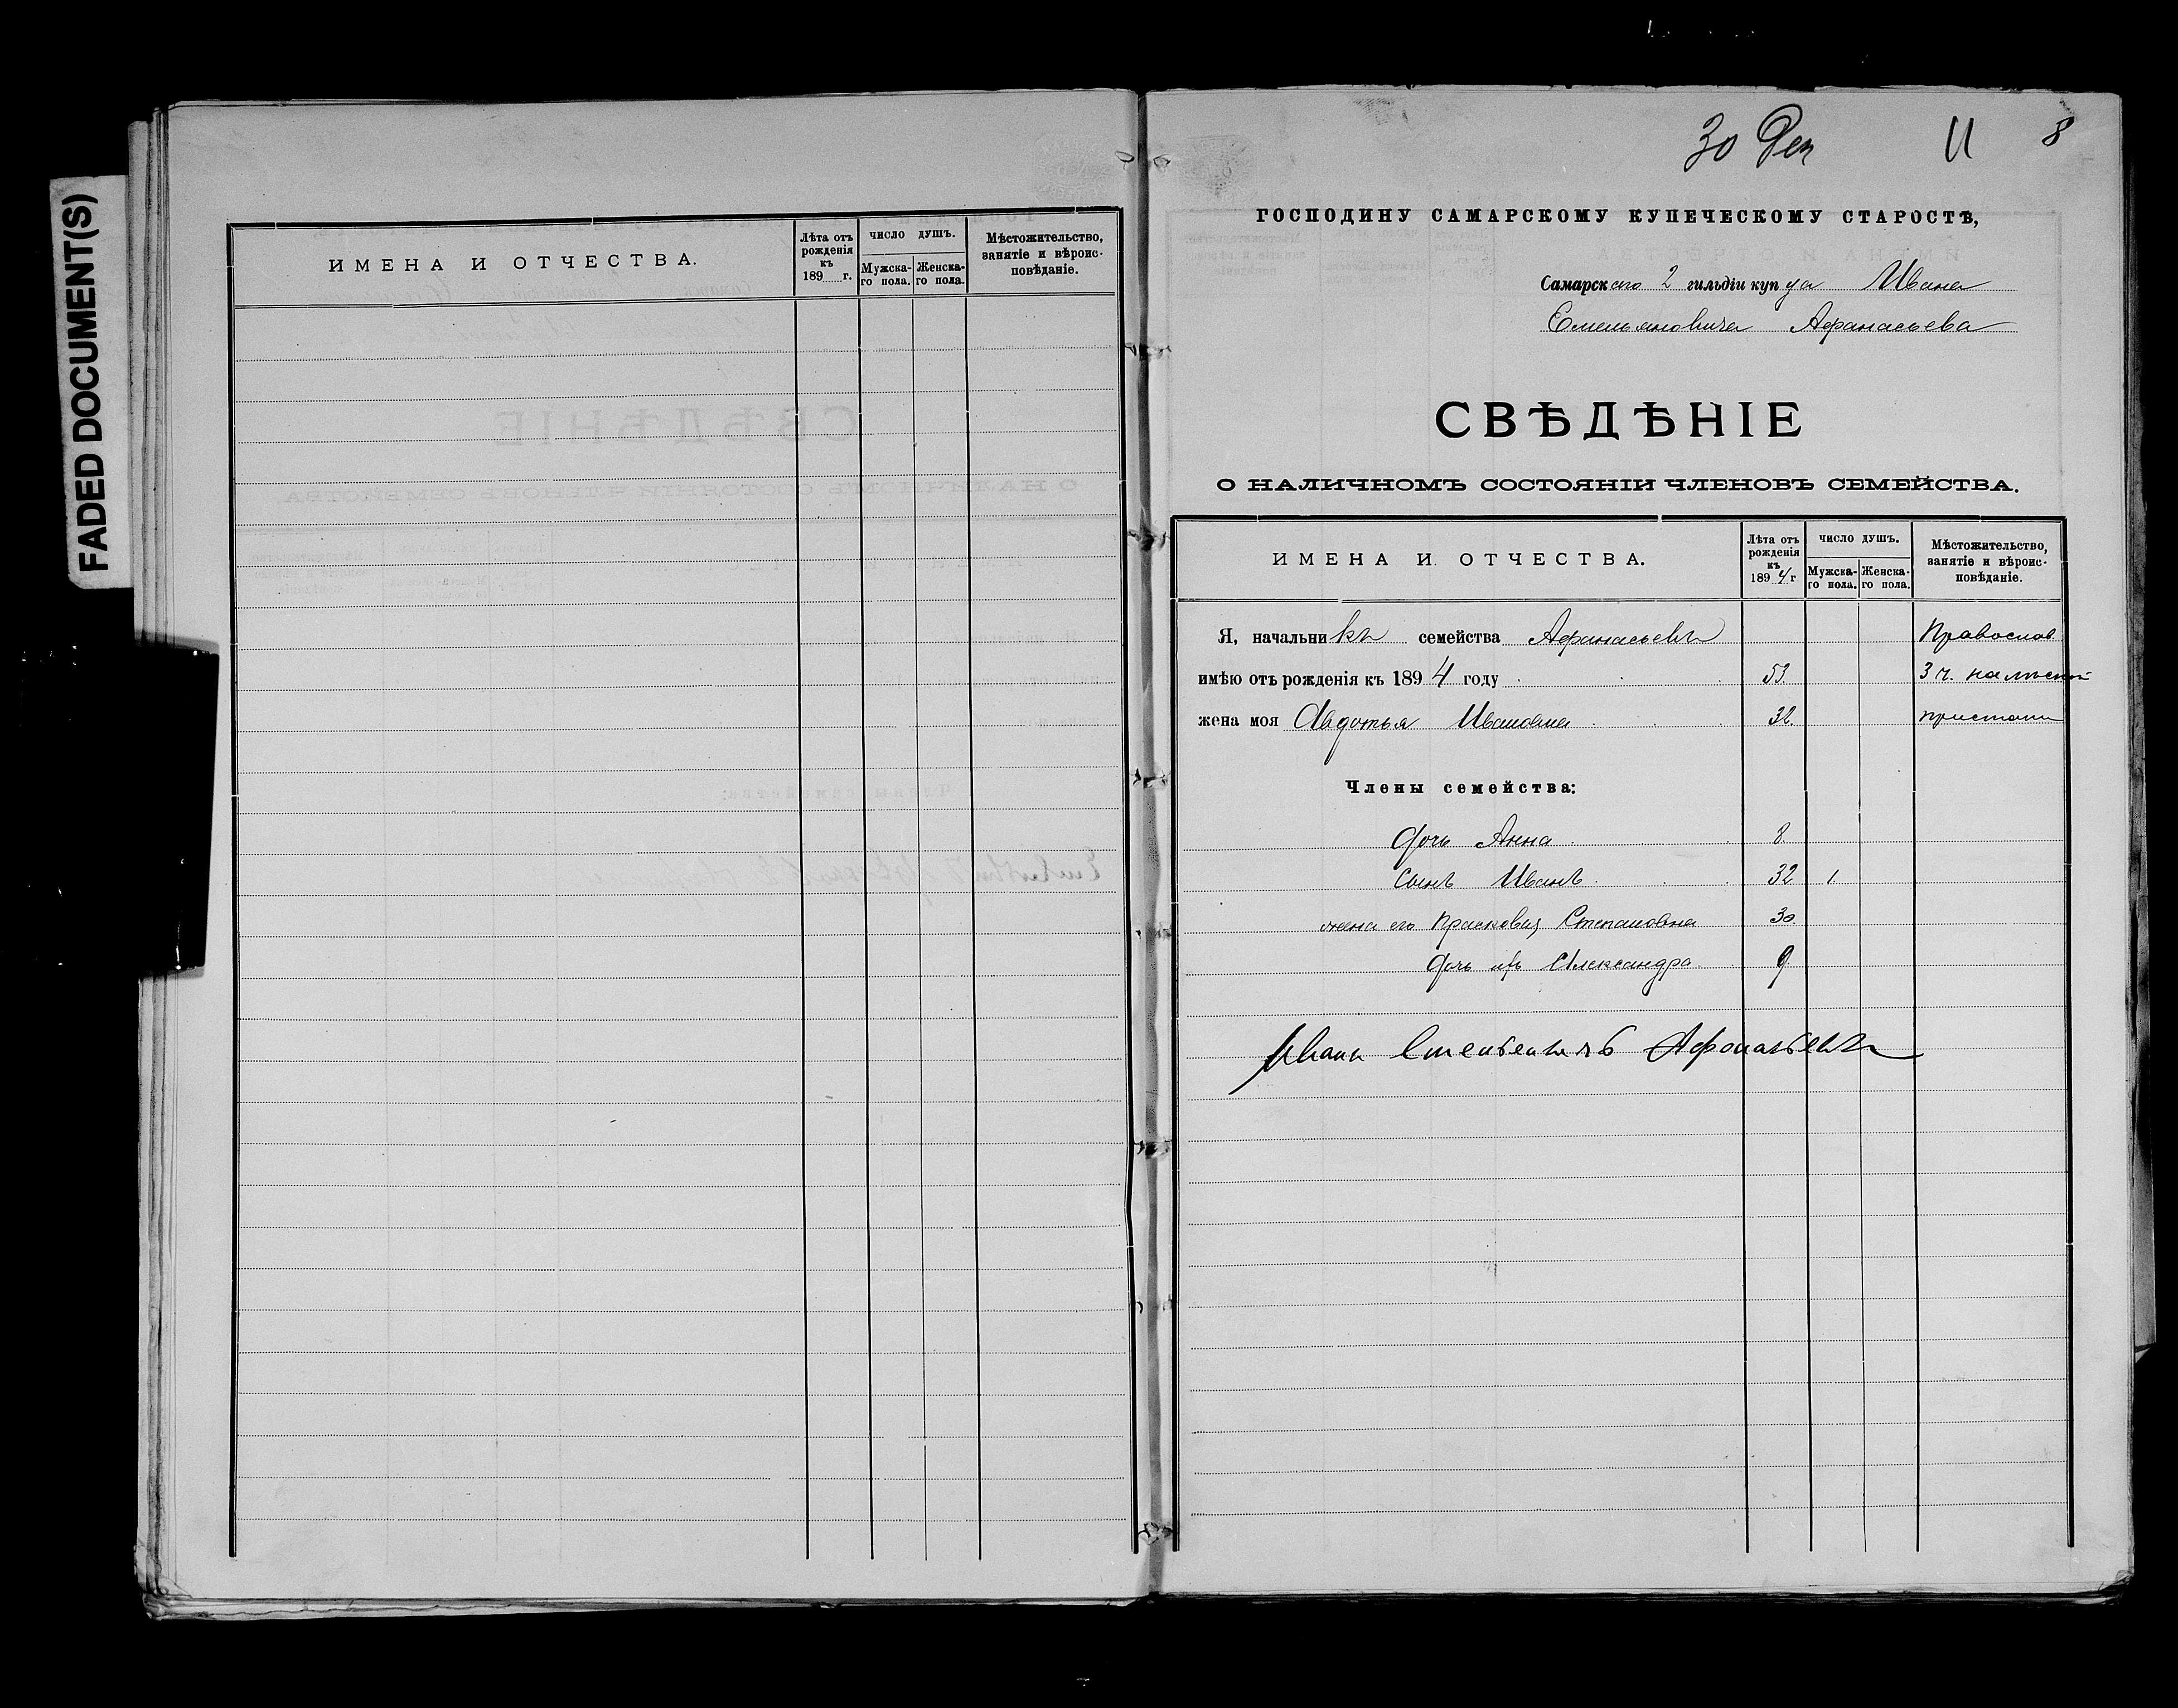 FADED DOCUMENT(S)
ИМЕНА И ОТЧЕСТВА.
Лѣта отъ рожденія къ 189 г.
ЧИСЛО ДУШЪ.
Мужска- го пола.
Женска- го пола.
Мѣстожительство, занятіе и вѣроис- повѣданіе.
30 Дек 11 8
ГОСПОДИНУ САМАРСКОМУ КУПЕЧЕСКОМУ СТАРОСТѢ,
Самарскаго 2 гильдіи купца Ивана
Емельяновича Афанасьева
СВѢДѢНІЕ
О НАЛИЧНОМЪ СОСТОЯНІИ ЧЛЕНОВЪ СЕМЕЙСТВА.
ИМЕНА И ОТЧЕСТВА.
Лѣта отъ рожденія къ 1894 г
ЧИСЛО ДУШЪ.
Мужска- го пола.
Женска- го пола.
Мѣстожительство, занятіе и вѣроис- повѣданіе.
Я, начальникъ семейства Афанасьевъ Православ
имѣю отъ рожденія къ 1894 году 53 3 ч. на
жена моя Авдотья Ивановна 32. пристани
Члены семейства:
Дочь Анна 8.
Сынъ Иванъ 32 1.
жена его Прасковья Степановна 30.
Дочь ихъ Александра 9
Иванъ Афанасьевъ